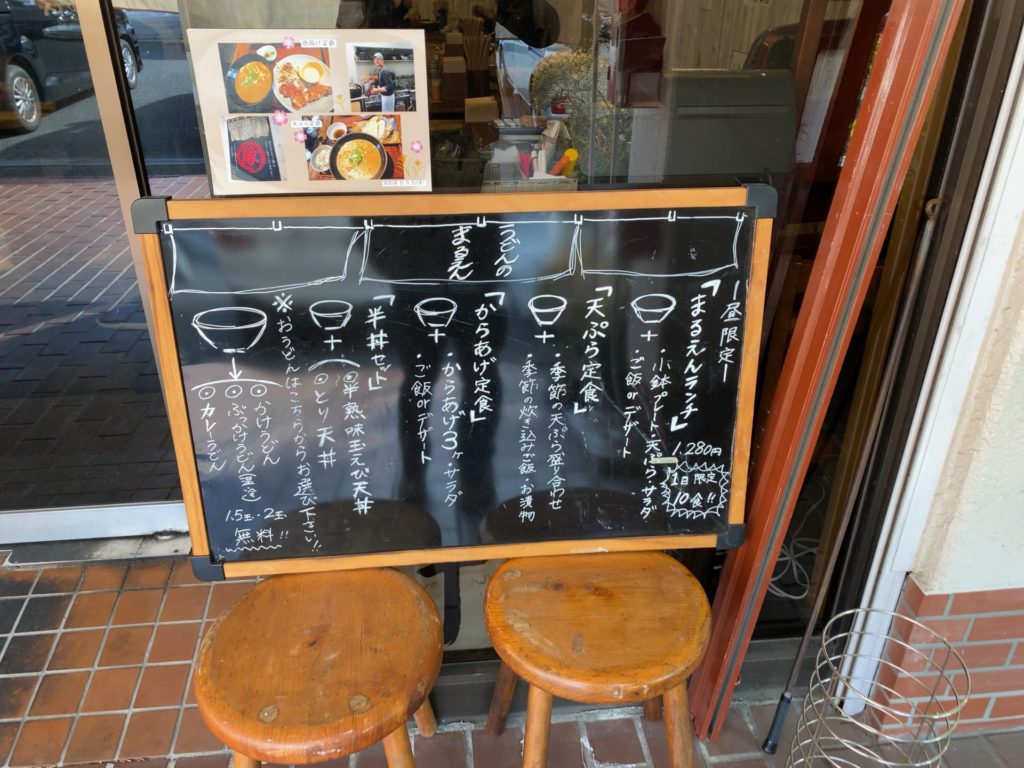 唐揚げ定食
天ぷら定食
うどんの
まるえん
ー昼限定ー
「まるえんランチ」
1,280円
1日限定
10食!!
+
・小鉢プレート・天ぷら・サラダ
・ご飯orデザート
「天ぷら定食」
+
・季節の天ぷら盛り合わせ
・季節の炊き込みご飯・お漬物
「からあげ定食」
+
・からあげ3ヶ・サラダ
・ご飯orデザート
「半丼セット」
+
半熟味玉えび天丼
とり天丼
※おうどんはこちらからお選び下さい!!
かけうどん
ぶっかけうどん温・冷
カレーうどん
1.5玉・2玉
無料!!